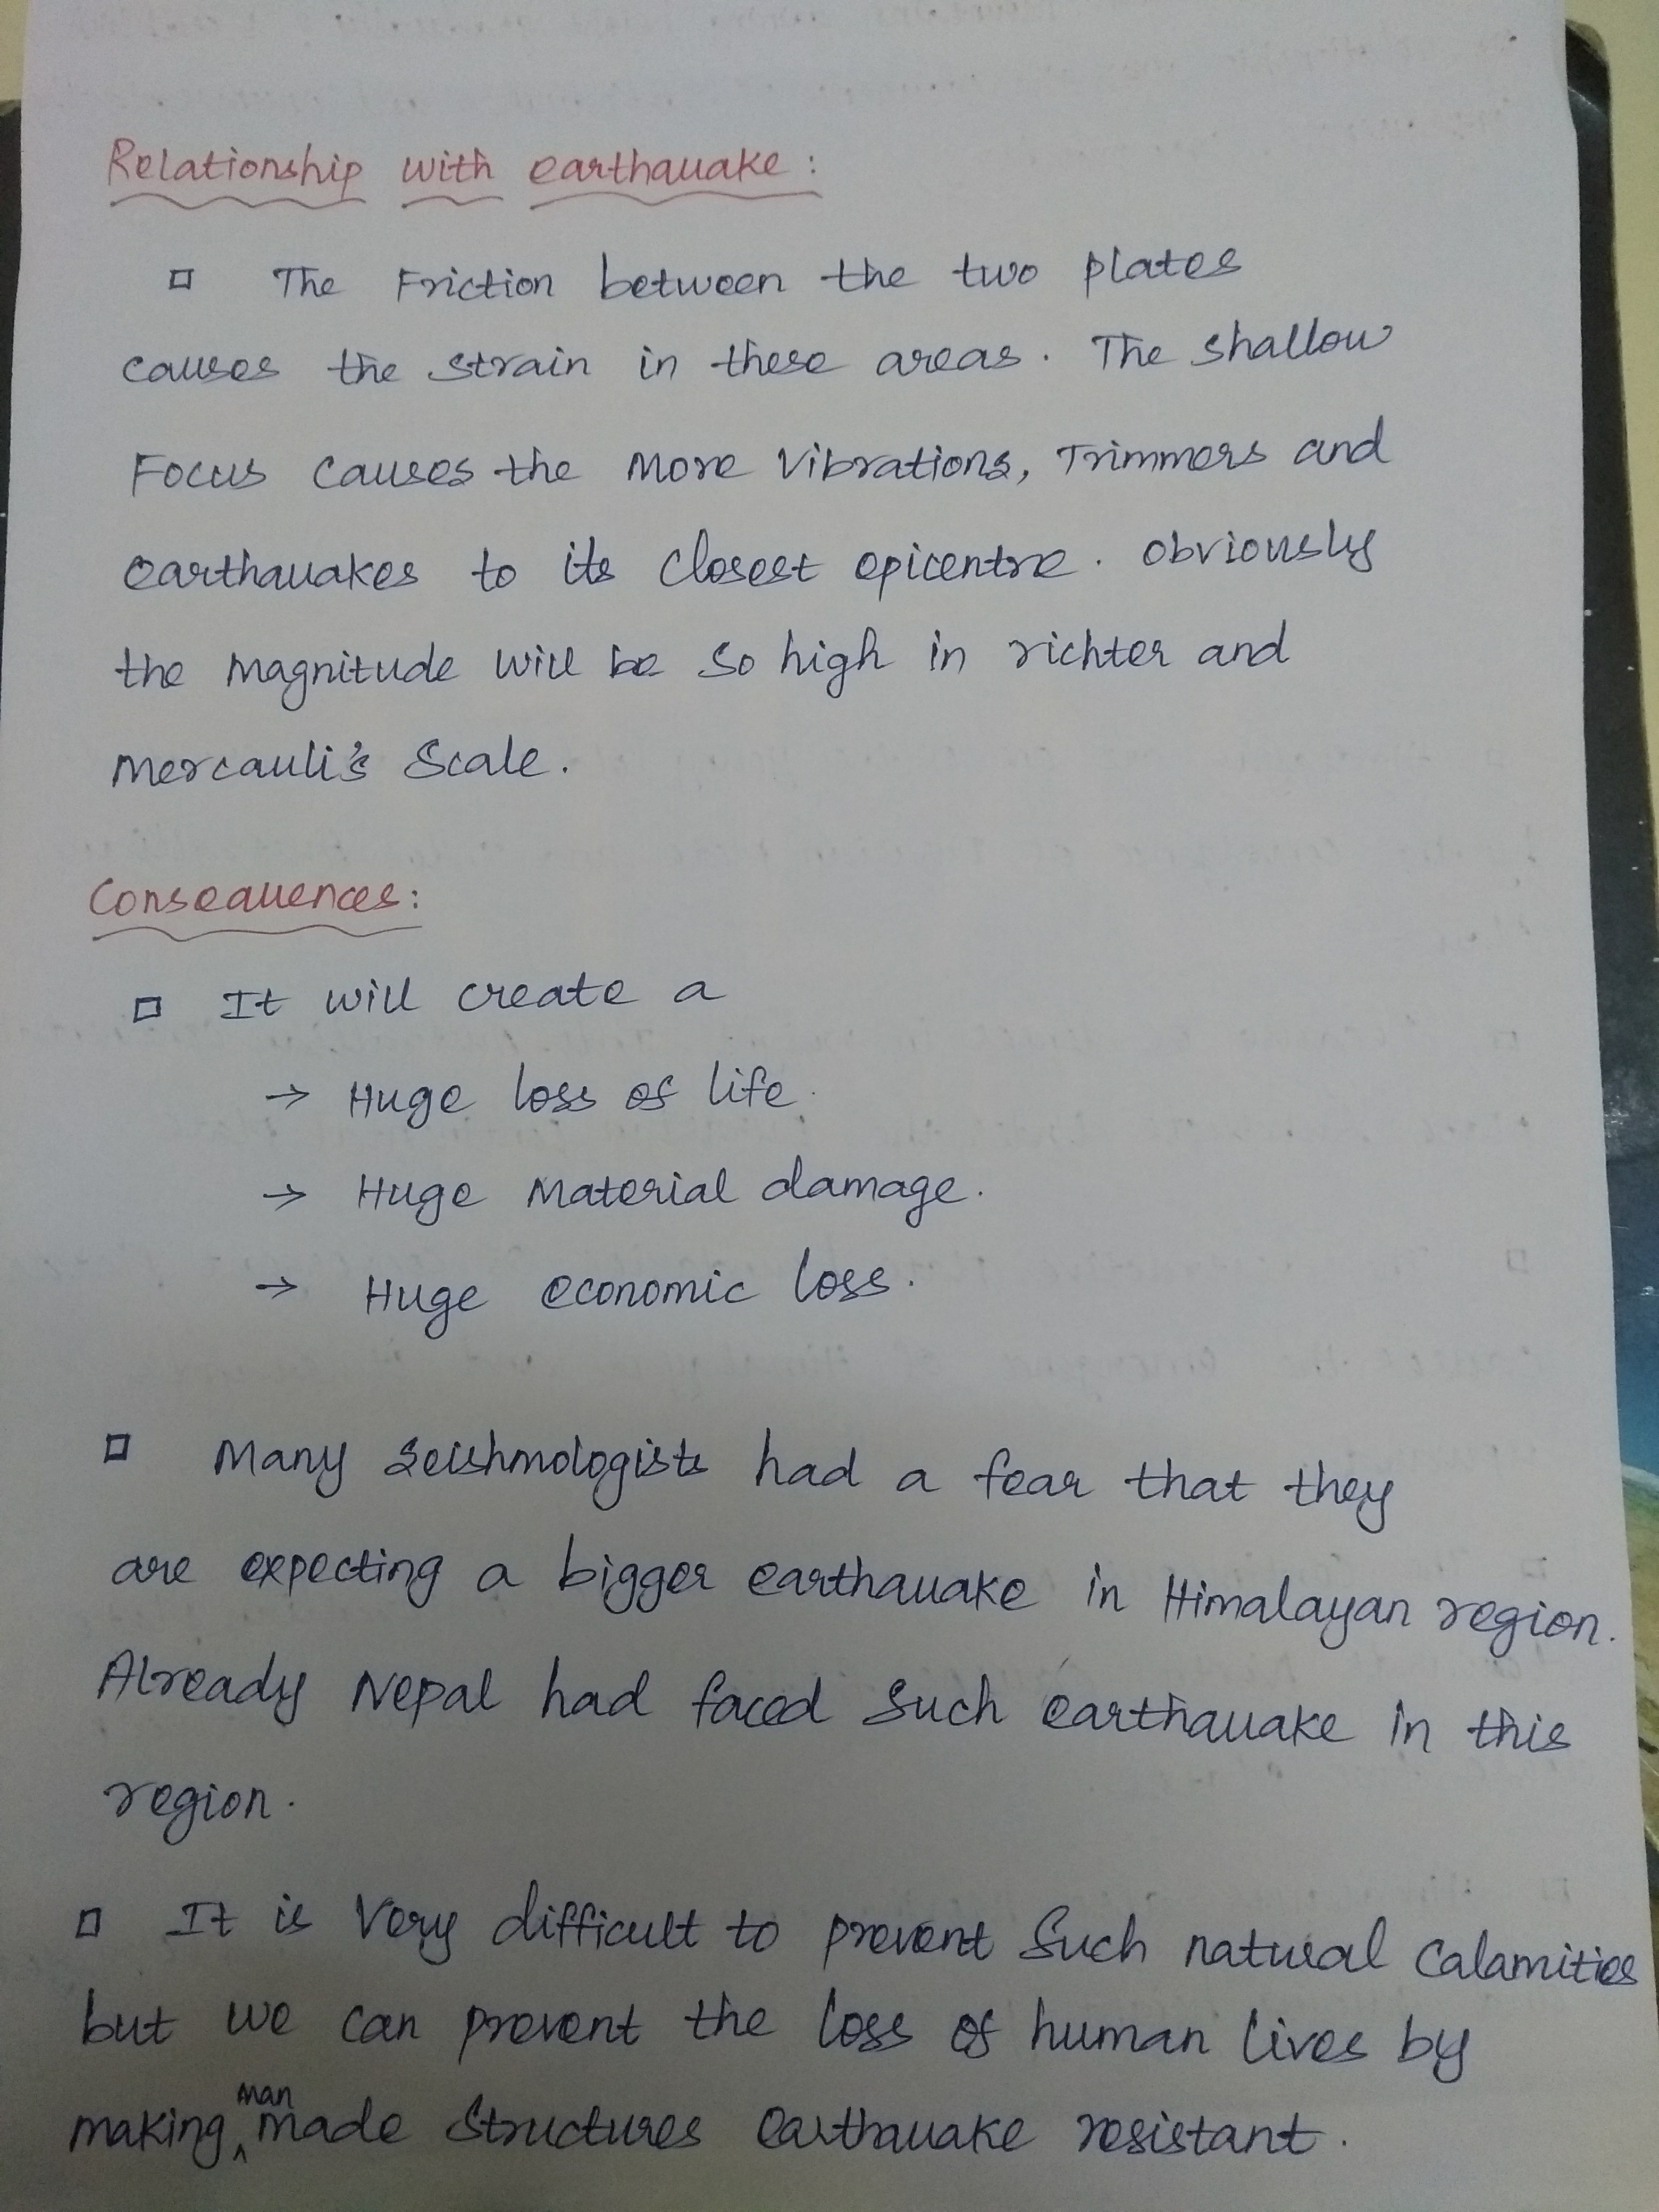 Relationship with earthquake:
□ The Friction between the two plates
causes the strain in these areas. The shallow
Focus causes the More Vibrations, Trimmers and
earthquakes to its closest epicentre. obviously
the magnitude will be so high in richter and
Mercauli's Scale.
Consequences:
□ It will create a
→ Huge loss of life.
→ Huge Material damage.
→ Huge economic loss.
□ Many Seishmologists had a fear that they
are expecting a bigger earthquake in Himalayan region.
Already Nepal had faced such earthquake in this
region.
□ It is Very difficult to prevent Such natural Calamities
but we can prevent the loss of human lives by
making man made structures earthquake resistant.